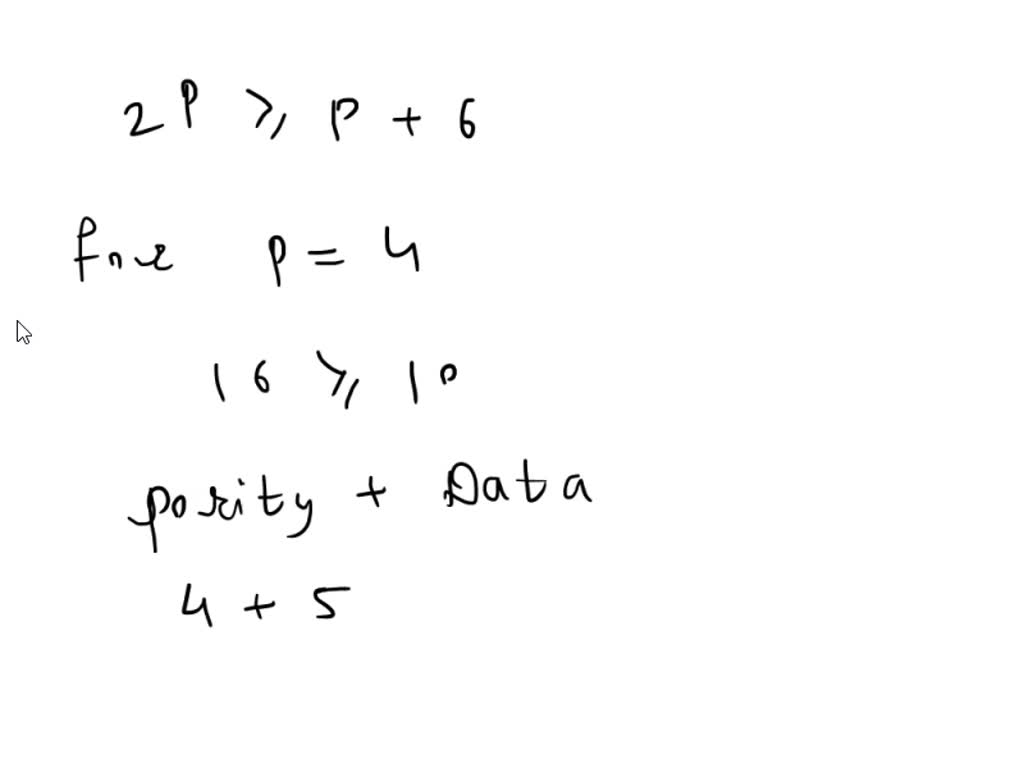 2^P ⩾ P + 6
for P = 4
16 ⩾ 10
parity + Data
4 + 5